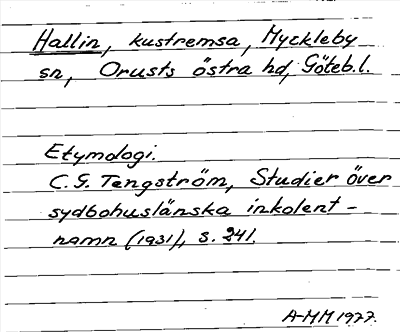 Hallin, kustremsa, Myckleby
sn, Orusts östra hd, Göteb.l.
Etymologi.
C.G. Tengström, Studier över
sydbohuslänska inkolent-
namn (1931), s. 241.
A-MM 1977.